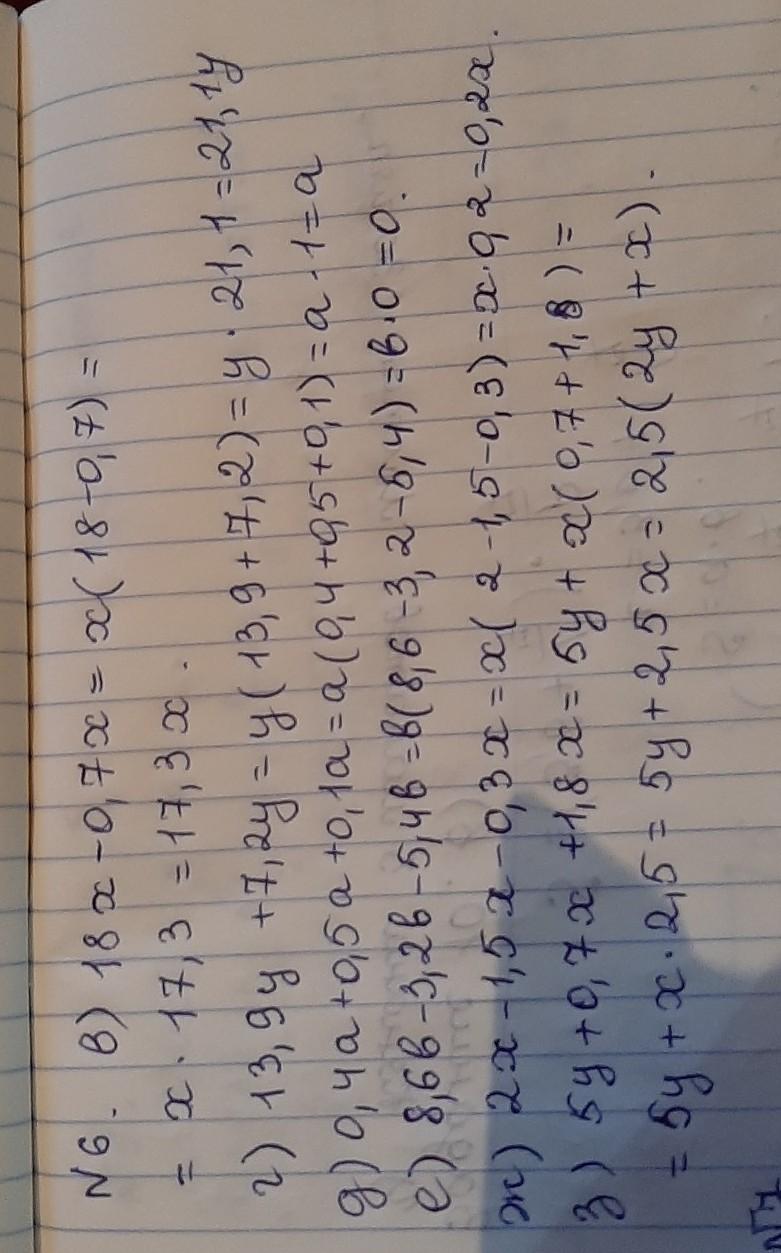 N6. в) 18x-0,7x=x(18-0,7)=
= x·17,3 =17,3x.
г) 13,9y +7,2y=y(13,9+7,2)=y·21,1=21,1y
д) 0,4a+0,5a+0,1a=a(0,4+0,5+0,1)=a·1=a
е) 8,6в-3,2в-5,4в=в(8,6-3,2-5,4)=в·0=0.
ж) 2x-1,5x-0,3x=x(2-1,5-0,3)=x·0,2=0,2x.
з) 5y+0,7x+1,8x=5y+x(0,7+1,8)=
=5y+x·2,5=5y+2,5x=2,5(2y+x).